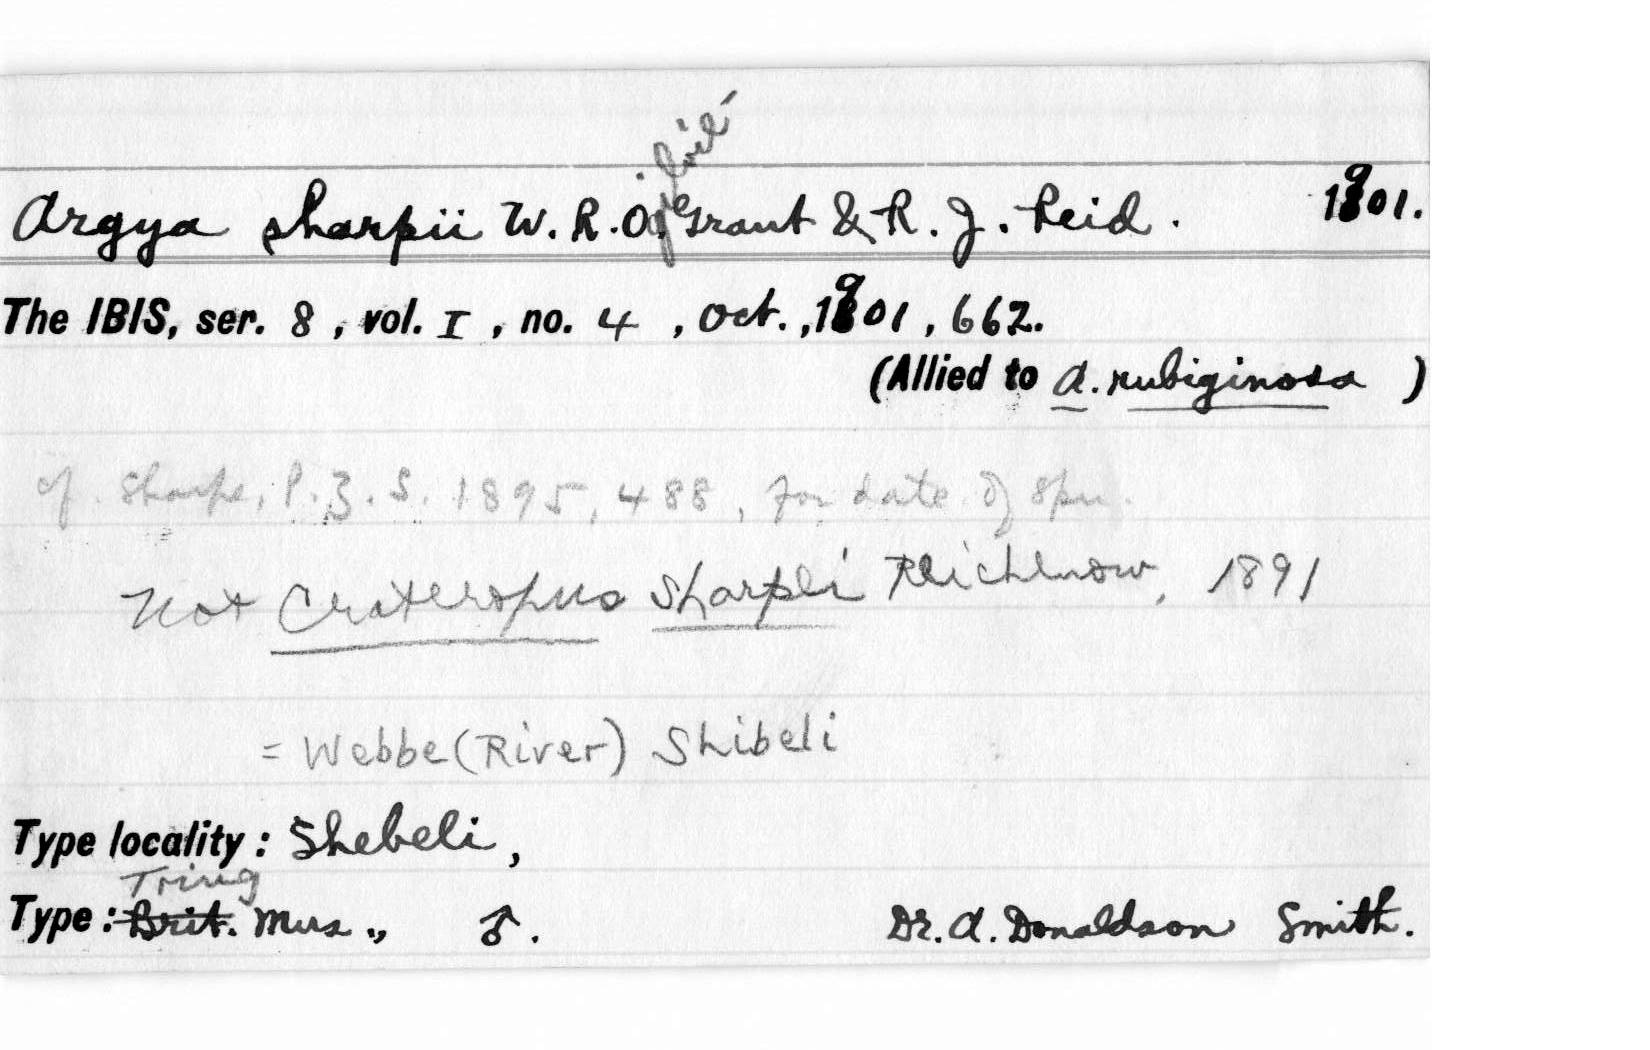 Argya sharpii W. R. O. Grant & R. J. Reid. 1901.
The IBIS, ser. 8, vol. I, no. 4, Oct., 1901, 662.
(Allied to A. rubiginosa )
cf. Sharpe, P.Z.S. 1895, 488, for date of spm.
Not Crateropus sharpei Reichenow, 1891
= Webbe (River) Shibeli
Type locality: Shebeli,
Tring
Type: Brit. Mus., ♂. Dr. A. Donaldson Smith.